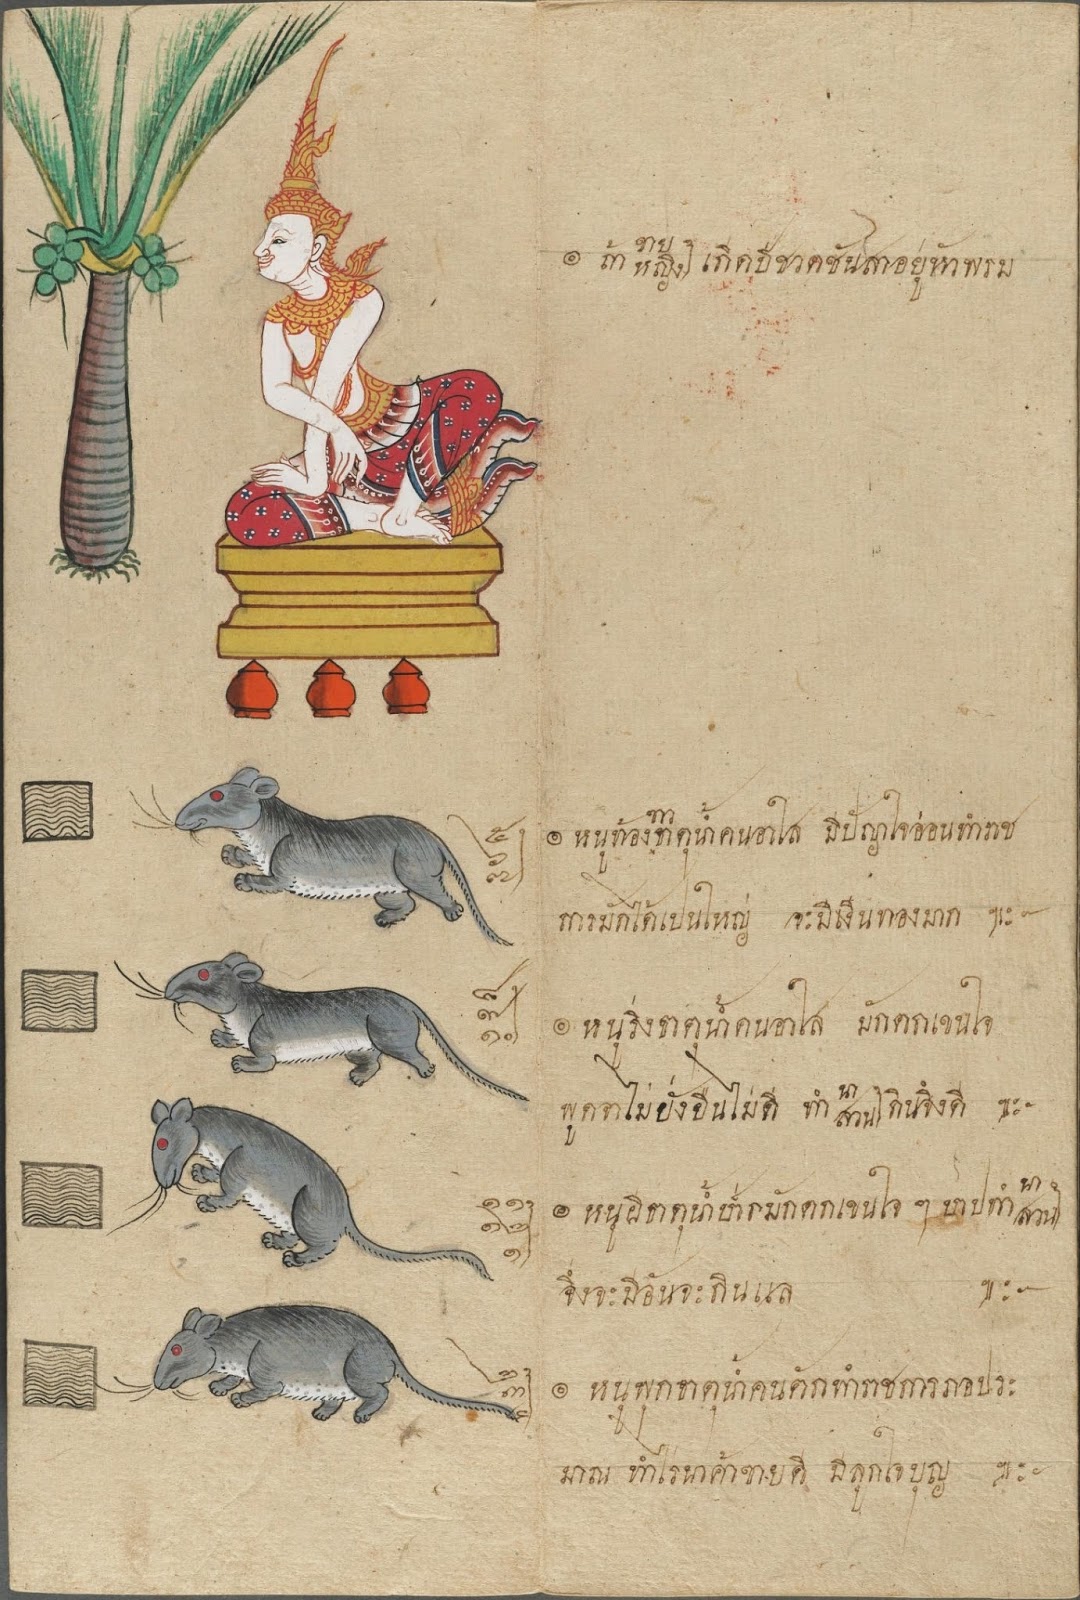 ๏ ถ้า ชาย หญิง เกิดปีชวดชันสาอยู่หัวพรม
๕ ๖ ๗
๏ หนูท้องขาวธาตุน้ำคนอาไส มีปัญาใจอ่อนทำราช
การมักได้เปนใหญ่ จะมีเงินทองมาก ฯะ
๘ ๙ ๑๐
๏ หนูริ่งธาตุน้ำคนอาไส มักตกเขนใจ
พูดจาไม่ยั่งยืนไม่ดี ทำ นา สวน กินจึ่งดี ฯะ
๑๑ ๑๒ ๑
๏ หนูผีธาตุน้ำ มักตกเขนใจ ๆ ทำ นา สวน
จึ่งจะมีอันจะกินแล ฯะ
๒ ๓ ๔
๏ หนูพุกธาตุน้ำคนดักทำราชการภอประ
มาณ ทำไร่นาค้าขายดี มีลูกใจบุญ ฯะ